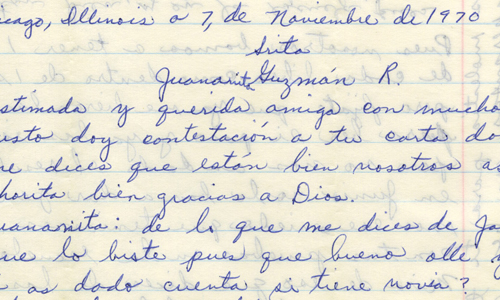 icago, Illinois a 7, de Noviembre de 1970
Srita
Juanarita Guzmán R.
stimada y querida amiga con mucho
usto doy contestación a tu carta do
me dices que están bien nosotros as
horita bien gracias a Dios.
uananita: de lo que me dices de Ja
ue lo biste pues que bueno olle y
as dado cuenta si tiene novia?